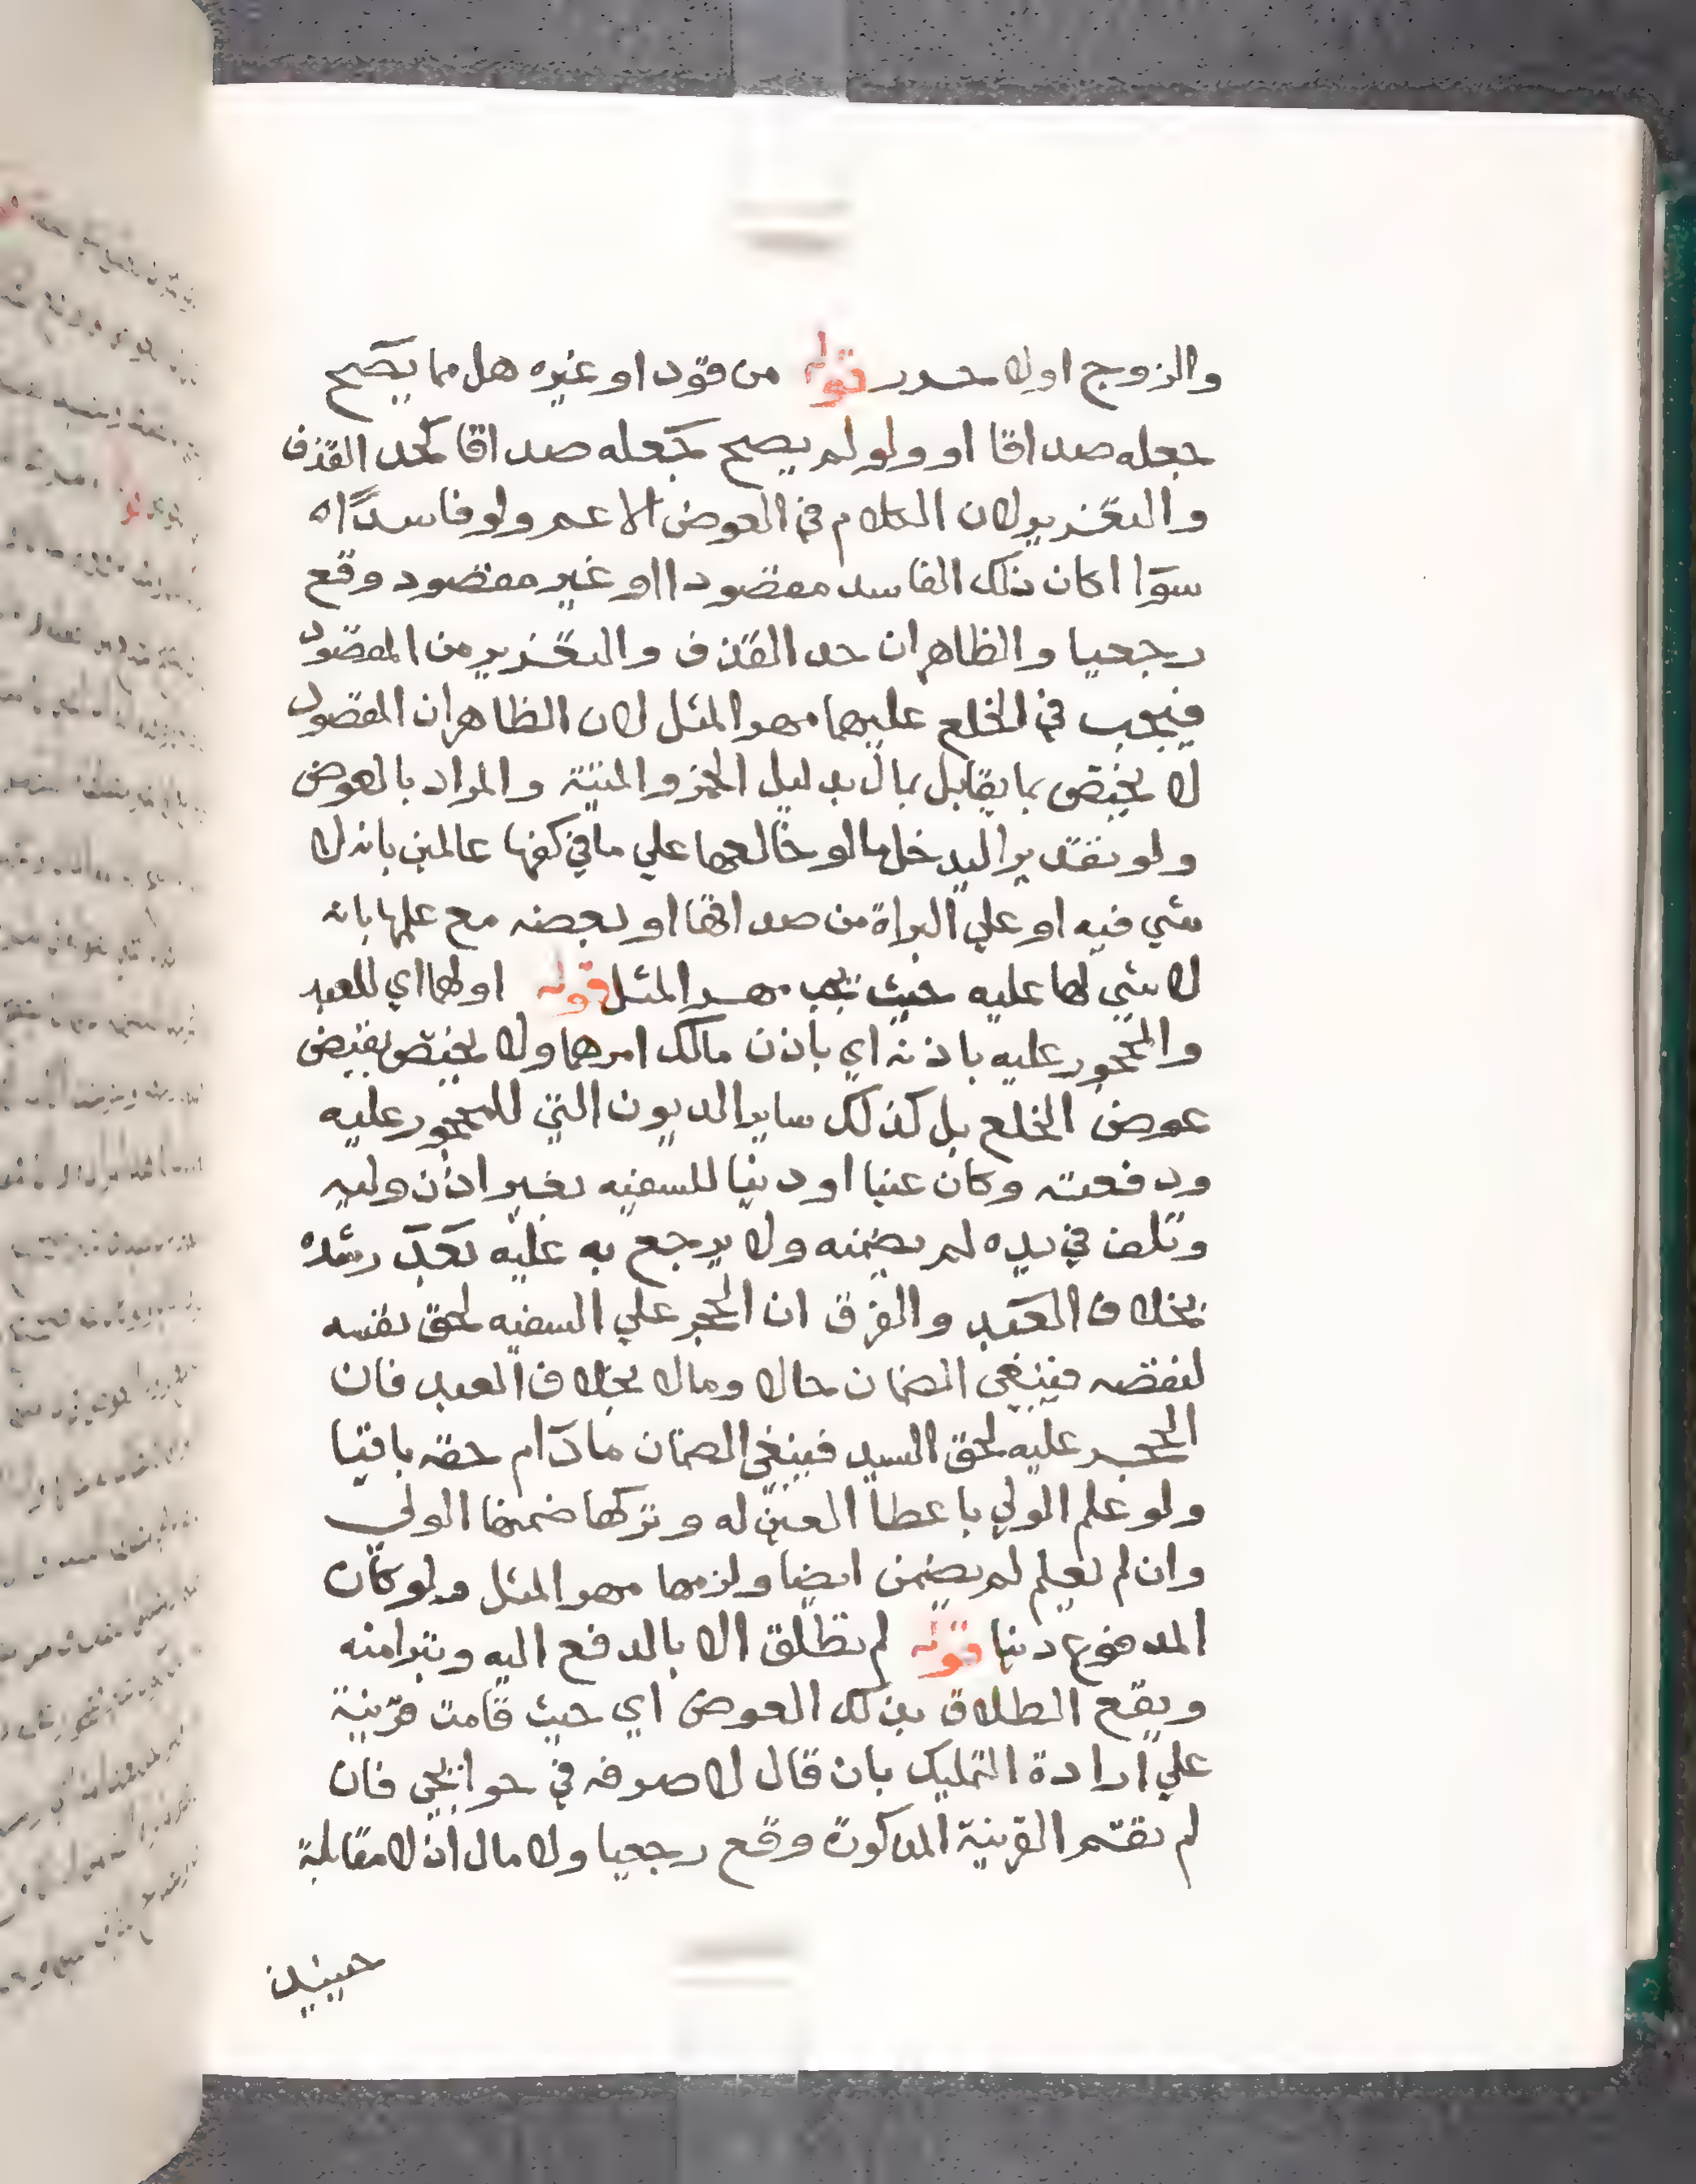 والزوج اولا محرر قوله من قود او غيره هل مما يصح
جعله صداقا او ولو لم يصح كجعله صداقا كحد القذف
والتعزير لان الكلام في العوض الاعم ولو فاسدا اه
سوا اكان ذلك الفاسد مقصودا او غير مقصود وقع
رجعيا والظاهر ان حد القذف والتعزير من المقصود
فيجب في الخلع عليهما مهر المثل لان الظاهر ان المقصود
لا يختص بما يقابل بمال بدليل الخمر والميتة والمراد بالعوض
ولو بتقدير اليدخل ما لو خالعها علي ما في كفها عالمين بانه لا
شي فيه او علي البراة من صداقها او بعضه مع علمها بانه
لا شي لها عليه حيث يجب مهر المثل قوله او لهما اي للعبد
والمحجور عليه باذنه اي باذن مالك امرهما ولا يختص بقبض
عوض الخلع بل كذلك ساير الديون التي للمحجور عليه
ودفعته وكان عينا او دينا للسفيه بغير اذن وليه
وتلف في يده لم يضمنه ولا يرجع به عليه بعد رشده
بخلاف العبد والفرق ان الحجر علي السفيه لحق نفسه
لنقصه فينبغي الضمان حالا ومالا بخلاف العبد فان
الحجر عليه لحق السيد فينبغي الضمان ما دام حقه باقيا
ولو علم الولي باعطا العين له وتركها ضمنها الولي
وان لم يعلم لم يضمن ايضا ولزمها مهر المثل ولو كان
المدفوع دينا قوله لم تطلق الا بالدفع اليه وتبرا منه
ويقع الطلاق بذلك العوض اي حيث قامت قرينة
علي ارادة التمليك بان قال لاصرفه في حوايجي فان
لم تقم القرينة المذكورة وقع رجعيا ولا مال اذ لا مقابلة
حينيذ